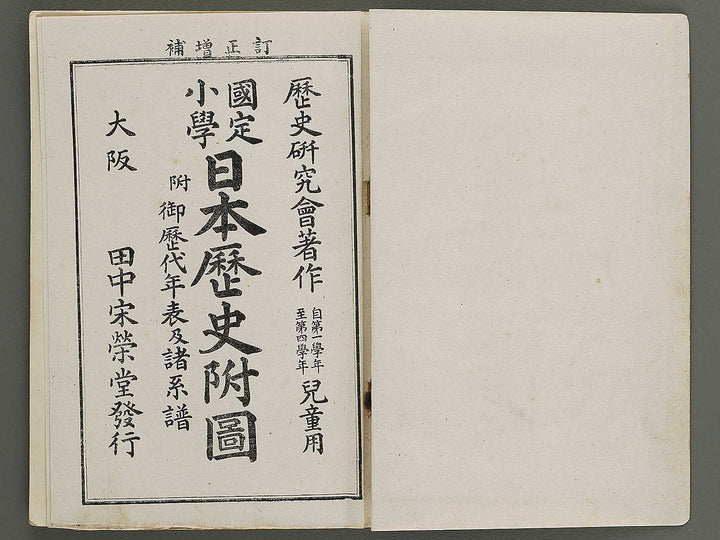 訂正增補
歷史硏究會著作 自第一學年至第四學年 兒童用
國定小學 日本歷史附圖
附 御歷代年表及諸系譜
大阪 田中宋榮堂發行